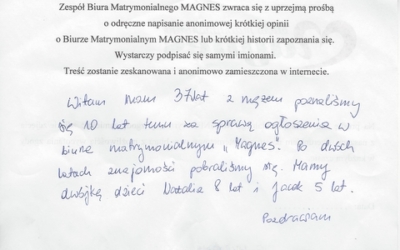 Zespół Biura Matrymonialnego MAGNES zwraca się z uprzejmą prośbą
o odręczne napisanie anonimowej krótkiej opinii
o Biurze Matrymonialnym MAGNES lub krótkiej historii zapoznania się.
Wystarczy podpisać się samymi imionami.
Treść zostanie zeskanowana i anonimowo zamieszczona w internecie.
Witam Mam 37 lat z mężem poznaliśmy
się 10 lat temu za sprawą ogłoszenia w
biurze matrymonialnym „Magnes". Po dwóch
latach znajomości pobraliśmy się. Mamy
dwójkę dzieci Natalia 8 lat i Jacek 5 lat.
Pozdrawiam